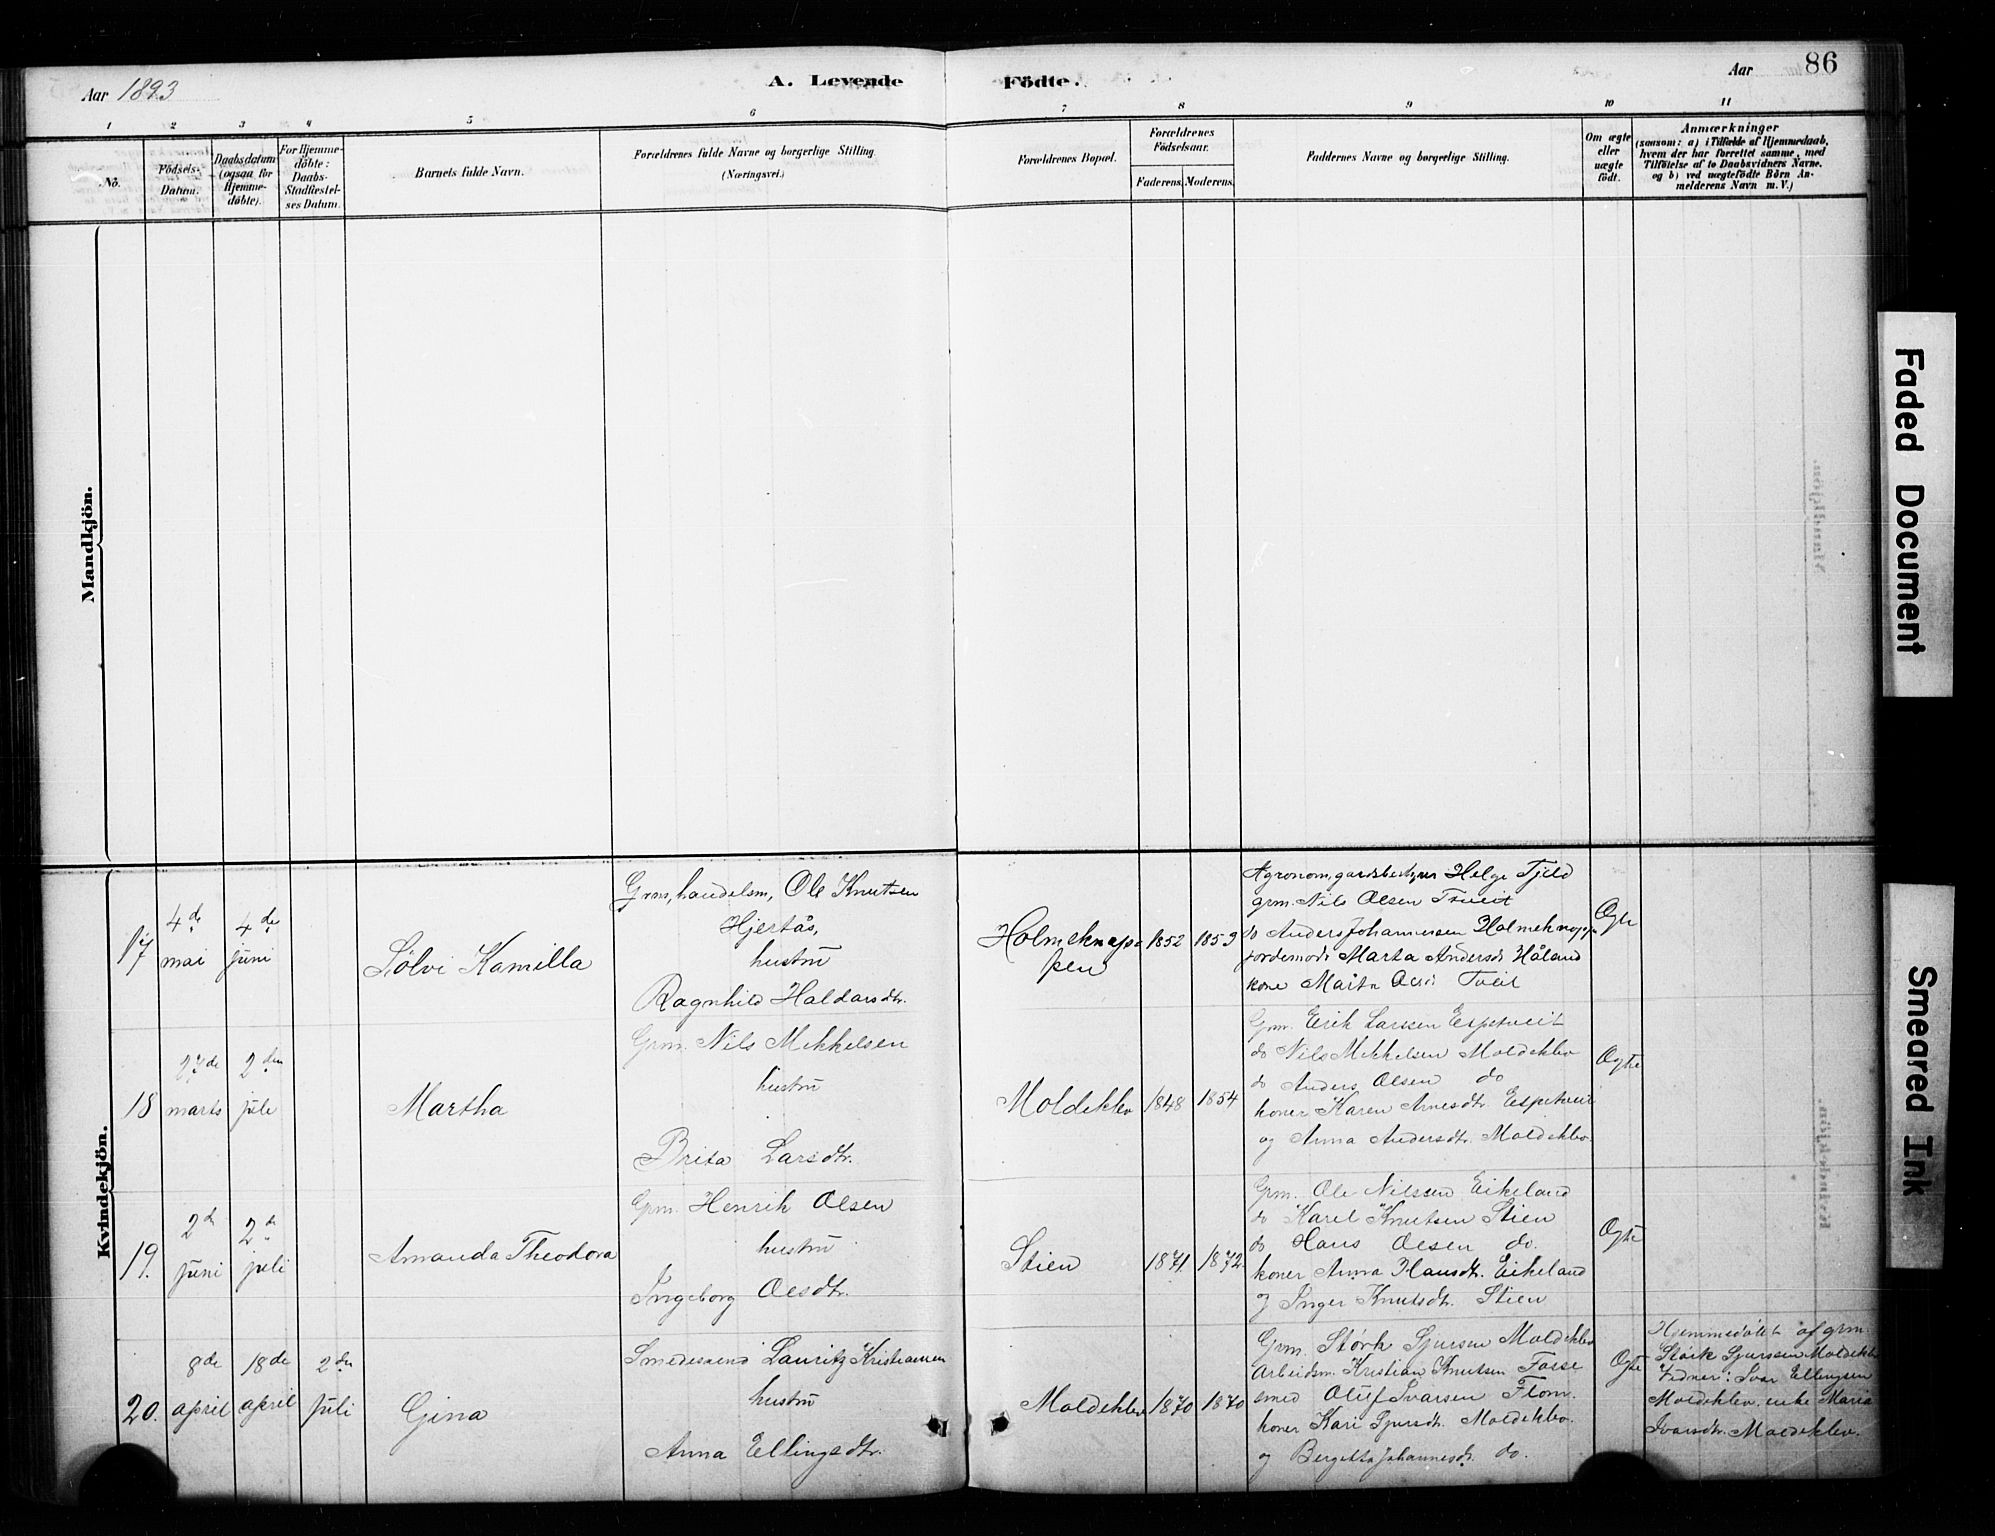 86
Aar 1893
A. Levende Födte.
Aar
1 2 3 4 5 6 7 8 9 10 11
No.
Födsels-
Datum.
Daabsdatum
(ogsaa for
Hjemme-
döbte).
For Hjemme-
döbte:
Daabs-
Stadfæstel-
ses Datum.
Barnets fulde Navn.
Forældrenes fulde Navne og borgerlige Stilling.
(Næringsvei.)
Forældrenes Bopæl.
Forældrenes
Födselsaar.
Faderens. Moderens.
Faddernes Navne og borgerlige Stilling.
Om ægte
eller
uægte
födt.
Anmærkninger
(saasom: a) i Tilfælde af Hjemmedaab,
hvem der har forrettet samme, med
Tilföielse af to Daabsvidners Navne,
og b) ved uægtefödte Börn An-
melderens Navn m. V.)
Mandkjön.
Kvindekjön.
17
4de
mai
4de
juni
Sølvi Kamilla
Grm, handelsm, Ole Knutsen
Hjertås,
hustru
Ragnhild Haldorsdtr.
Holmeknap-
pen
1852
1853
Agronom, gardsbestyrer Helge Fjeld
grm. Nils Olsen Tveit
do Anders Johannessen Holmeknappen
jordemodr Marta Andersdr Håland
kone Marta Olsdr Tveit
Ægte
18
27de
marts
2den
juli
Martha
Grm. Nils Mikkelsen
hustru
Brita Larsdtr.
Moldeklev
1848
1854
Grm. Erik Larssen Espetveit
do Nils Mikkelsen Moldeklev
do Anders Olsen do
koner Karen Arnesdtr. Espetveit
og Anna Andersdtr. Moldeklev.
Ægte
19.
2de
juni
2de
juli
Amanda Theodora
Grm. Henrik Olsen
hustru
Ingeborg Olsdtr.
Stien
1871
1872.
Grm. Ole Nilssen Eikeland
do Karel Knutsen Stien
do Hans Olsen do.
koner Anna Hansdtr. Eikeland
og Inger Knutsdtr. Stien
Ægte
20.
8de
april
18de
april
2den
juli
Gina
Smedesvend Lauritz Kristiansen
hustru
Anna Ellingsdtr.
Moldeklev
1870
1870
Grm. Størk Sjursen Moldeklev
Arbeidsm. Kristian Knutsen Fosse
smed Oluf Ivarsen Flom.
koner Kari Sjursdtr. Moldeklev.
og Bergitta Johannesdr. do.
Ægte
Hjemmedøbt af grm.
Størk Sjurssen Moldeklev
Vidner: Ivar Ellingsen
Moldeklev. enke Maria
Ivarsdtr. Moldeklev.
Faded Document
Smeared Ink